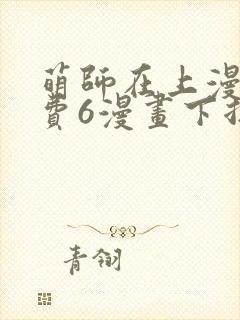 萌師在上漫
費6漫畫下
青翎